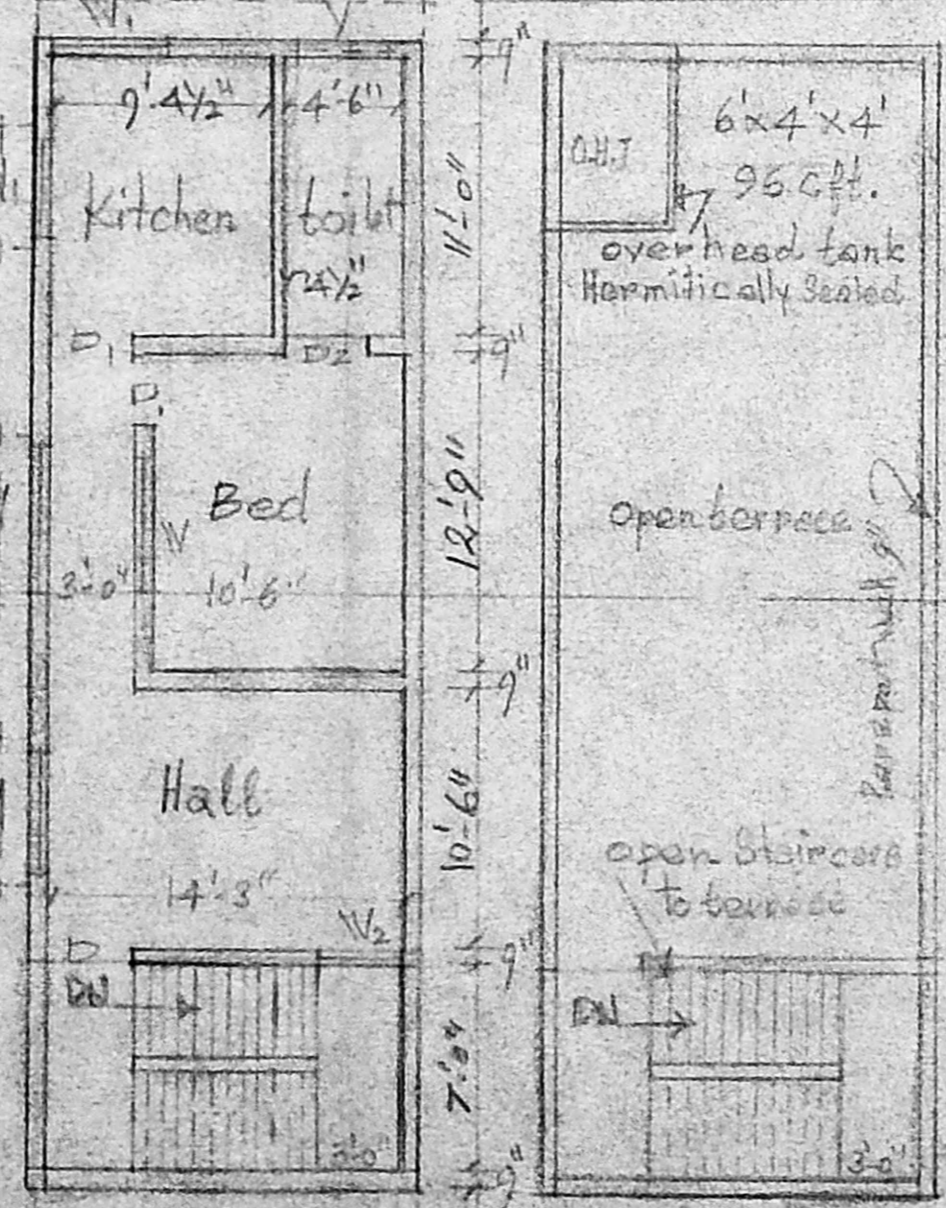 W1
V
9'-4½"
4'-6"
Kitchen
toilet
4½"
D1
D2
D1
Bed
W
3'-0"
10'-6"
Hall
14'-3"
W2
D
DN
3'-0"
9"
11'-0"
9"
12'-9"
9"
10'-6"
9"
7'-0"
9"
O.H.T
6'x4'x4'
96 cft.
overhead tank
Hermitically Sealed
Open terrace
9"
open Staircase
to terrace
DN
3'-0"